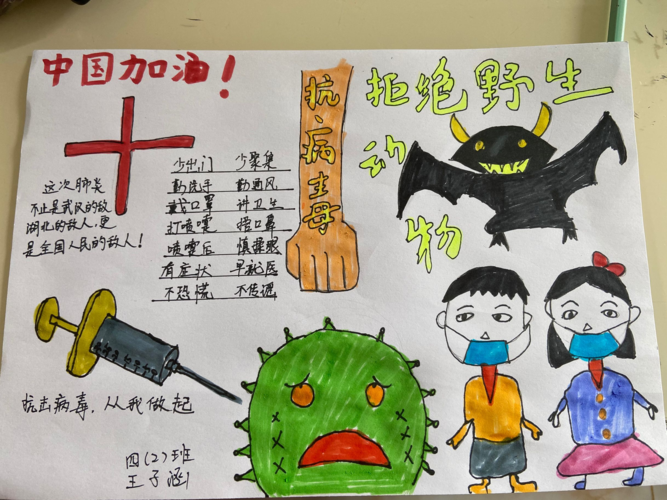 中国加油！
拒绝野生
动
物
抗病毒
这次肺炎
不止是武汉的敌
湖北的敌人,更
是全国人民的敌人！
少出门 少聚集
勤洗手 勤通风
戴口罩 讲卫生
打喷嚏 捂口鼻
喷嚏后 慎揉眼
有症状 早就医
不恐慌 不传谣
抗击病毒，从我做起
四(2)班
王子涵